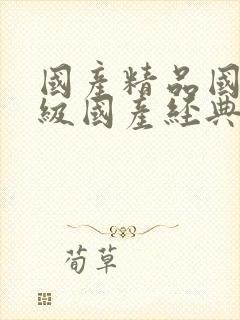 國產精品國
級國產經典
荀草